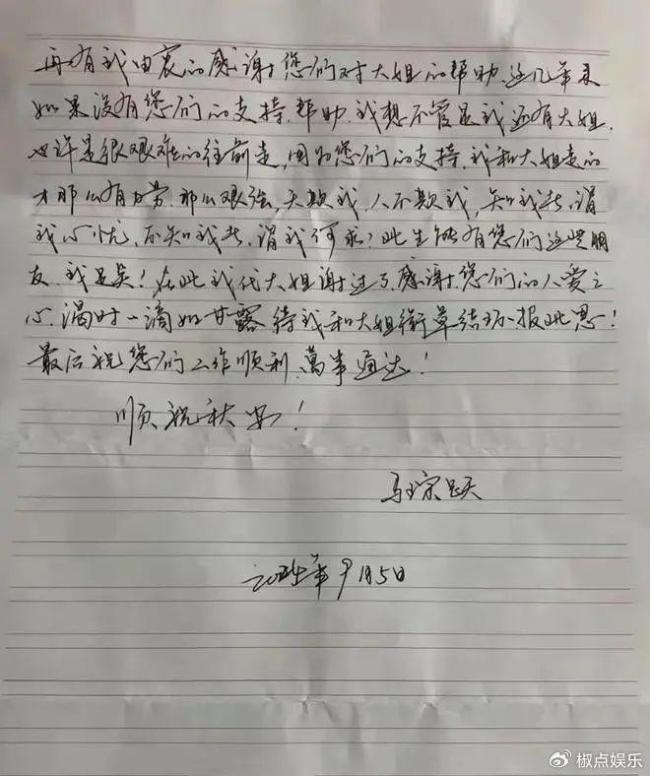 再有我由衷的感谢您们对大姐的帮助.这几年来
如果没有您们的支持.帮助.我想不管是我还有大姐.
也许是很艰难的往前走,因为您们的支持.我和大姐走的
才那么有力量.那么艰强.天欺我.人不欺我,知我者,谓
我心忧,不知我者,谓我何求?此生能有您们这些朋
友.我足矣!在此我代大姐谢过了.感谢.您们的人爱之
心.渴时一滴如甘露.待我和大姐衔草结环.报此恩!
最后祝您们工作顺利.萬事通达!
顺祝秋安!
马宗跃
年9月5日
椒点娱乐